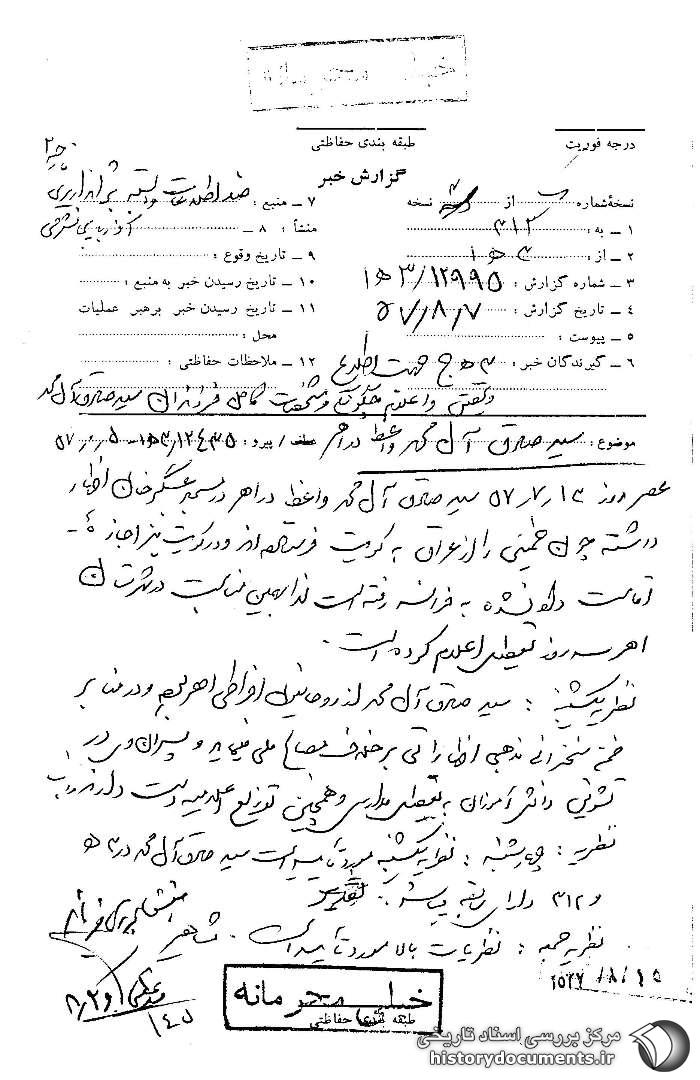 خیلی محرمانه
درجه فوریت
طبقه بندی حفاظتی
گزارش خبر
نسخهٔ شماره از نسخه
۱ ــ به : ۳۱۲
۲ ــ از : ۳ ه ۱
۳ ــ شماره گزارش : ۱۲۹۹۵/ ۳ ه ۱
۴ ــ تاریخ گزارش : ۵۷/۸/۷
۵ ــ پیوست :
۶ ــ گیرندگان خبر : جهت اطلاع
۷ ــ منبع :
۸ ــ منشأ :
۹ ــ تاریخ وقوع :
۱۰ ــ تاریخ رسیدن خبر به منبع :
۱۱ ــ تاریخ رسیدن خبر برهبر عملیات
محل :
۱۲ ــ ملاحظات حفاظتی :
و اعلام چگونگی و مشخصات کامل فرزندان سید صادق آل محمد
موضوع : سید صادق آل محمد واعظ در اهر
عصر روز ۵۷/۷/۱۳ سید صادق آل محمد واعظ در اهر در مسجد عسگرخان اظهار
داشته چون خمینی را از عراق به کویت فرستاده‌اند و در کویت نیز اجازه
اقامت داده نشده به فرانسه رفته است لذا بهمین مناسبت در شهرستان
اهر سه روز تعطیلی اعلام کرده است.
نظریه یکشنبه : سید صادق آل محمد از روحانیون افراطی اهر بوده و در منابر
ضمن سخنرانی مذهبی اظهاراتی برخلاف مصالح ملی مینماید و پسران وی در
تشویق دانش آموزان به تعطیلی مدارس و همچنین توزیع اعلامیه دست دارند
نظریه چهارشنبه : نظریه یکشنبه مورد تأیید است سید صادق آل محمد در ۳ ه
و ۳۱۲ دارای سابقه میباشد.
نظریه جمعه : نظریات بالا مورد تأیید است.
۲۵۳۷/۸/۱۵
خیلی محرمانه
طبقه بندی حفاظتی
مرکز بررسی اسناد تاریخی
historydocuments.ir